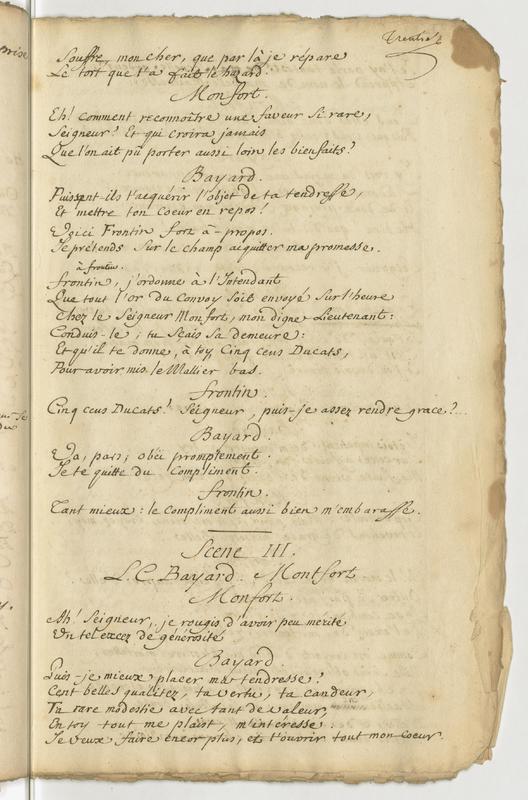 Souffre, mon cher, que par là je répare
Le tort que t'a fait le hazard.
Monfort.
Eh! comment reconnoître une faveur si rare,
Seigneur? Et qui croira jamais
Que l'on ait pû porter aussi loin les bienfaits?
Bayard.
Puissent-ils t'acquérir l'objet de ta tendresse,
Et mettre ton coeur en repos!
Voici Frontin fort à-propos.
Je prétends sur le champ acquitter ma promesse.
à frontin.
frontin, j'ordonne à l'Intendant
Que tout l'or du Convoy soit envoyé sur l'heure
Chez le Seigneur Monfort, mon digne Lieutenant:
Conduis-le; tu sçais sa demeure:
Et qu'il te donne, à toy, Cinq cens Ducats,
Pour avoir mis le Mallier bas.
frontin.
Cinq cens Ducats? Seigneur, puis-je assez rendre grace?..
Bayard.
Va, pars; obéi promptement.
Je te quitte du Compliment.
frontin.
Tant mieux: le compliment aussi bien m'embarasse.
Scene III.
L.C. Bayard. Montfort
Monfort.
Ah! Seigneur, je rougis d'avoir peu mérité
Un tel excez de générosité
Bayard.
Puis-je mieux placer ma tendresse?
Cent belles qualitez, ta vertu, ta candeur,
Ta rare modestie avec tant de valeur,
En toy tout me plaist, m'interesse.
Je veux faire encor plus, et t'ouvrir tout mon coeur.